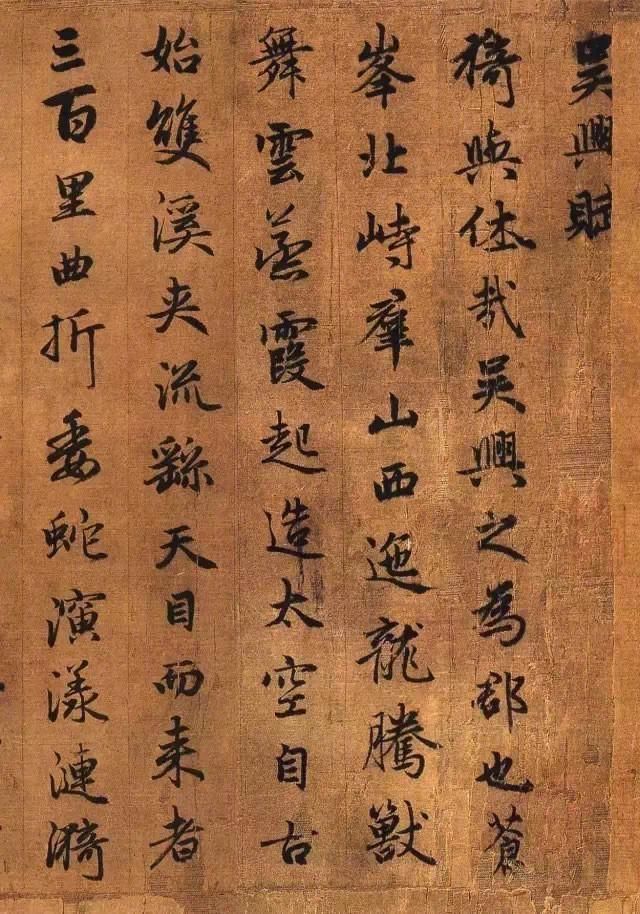 吴興賦
猗與休哉吴興之為郡也蒼
峯北峙羣山西迤龍騰獸
舞雲蒸霞起造太空自古
始雙溪夾流繇天目而来者
三百里曲折委蛇演漾漣漪